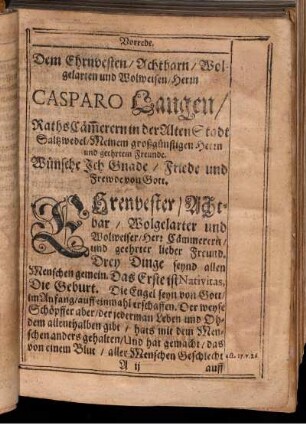 Vorrede.
Dem Ehrnvesten / Achtbarn / Wol-
gelarten und Wolweisen / Herrn
CASPARO Langen /
Raths Cämerern in der Alten Stadt
Saltzwedel / Meinem großgünstigen Herrn
und geehrten Freunde.
Wünsche Ich Gnade / Friede und
Frewde von Gott.
EHrenvester / Acht-
bar / Wolgelarter und
Wolweiser / Herr Cämmererr /
und geehrter lieber Freund.
Drey Dinge seynd allen
Menschen gemein. Das Erste ist Nativitas,
Die Geburt. Die Engel seyn von Gott /
im Anfang / auff einmahl erschaffen. Der weyse
Schöpffer aber / der jederman Leben und Oh-
dem allenthalben gibt / hats mit dem Men-
schen anders gehalten / Und hat gemacht / das
von einem Blut / aller Menschen Geschlecht
A ij
auff